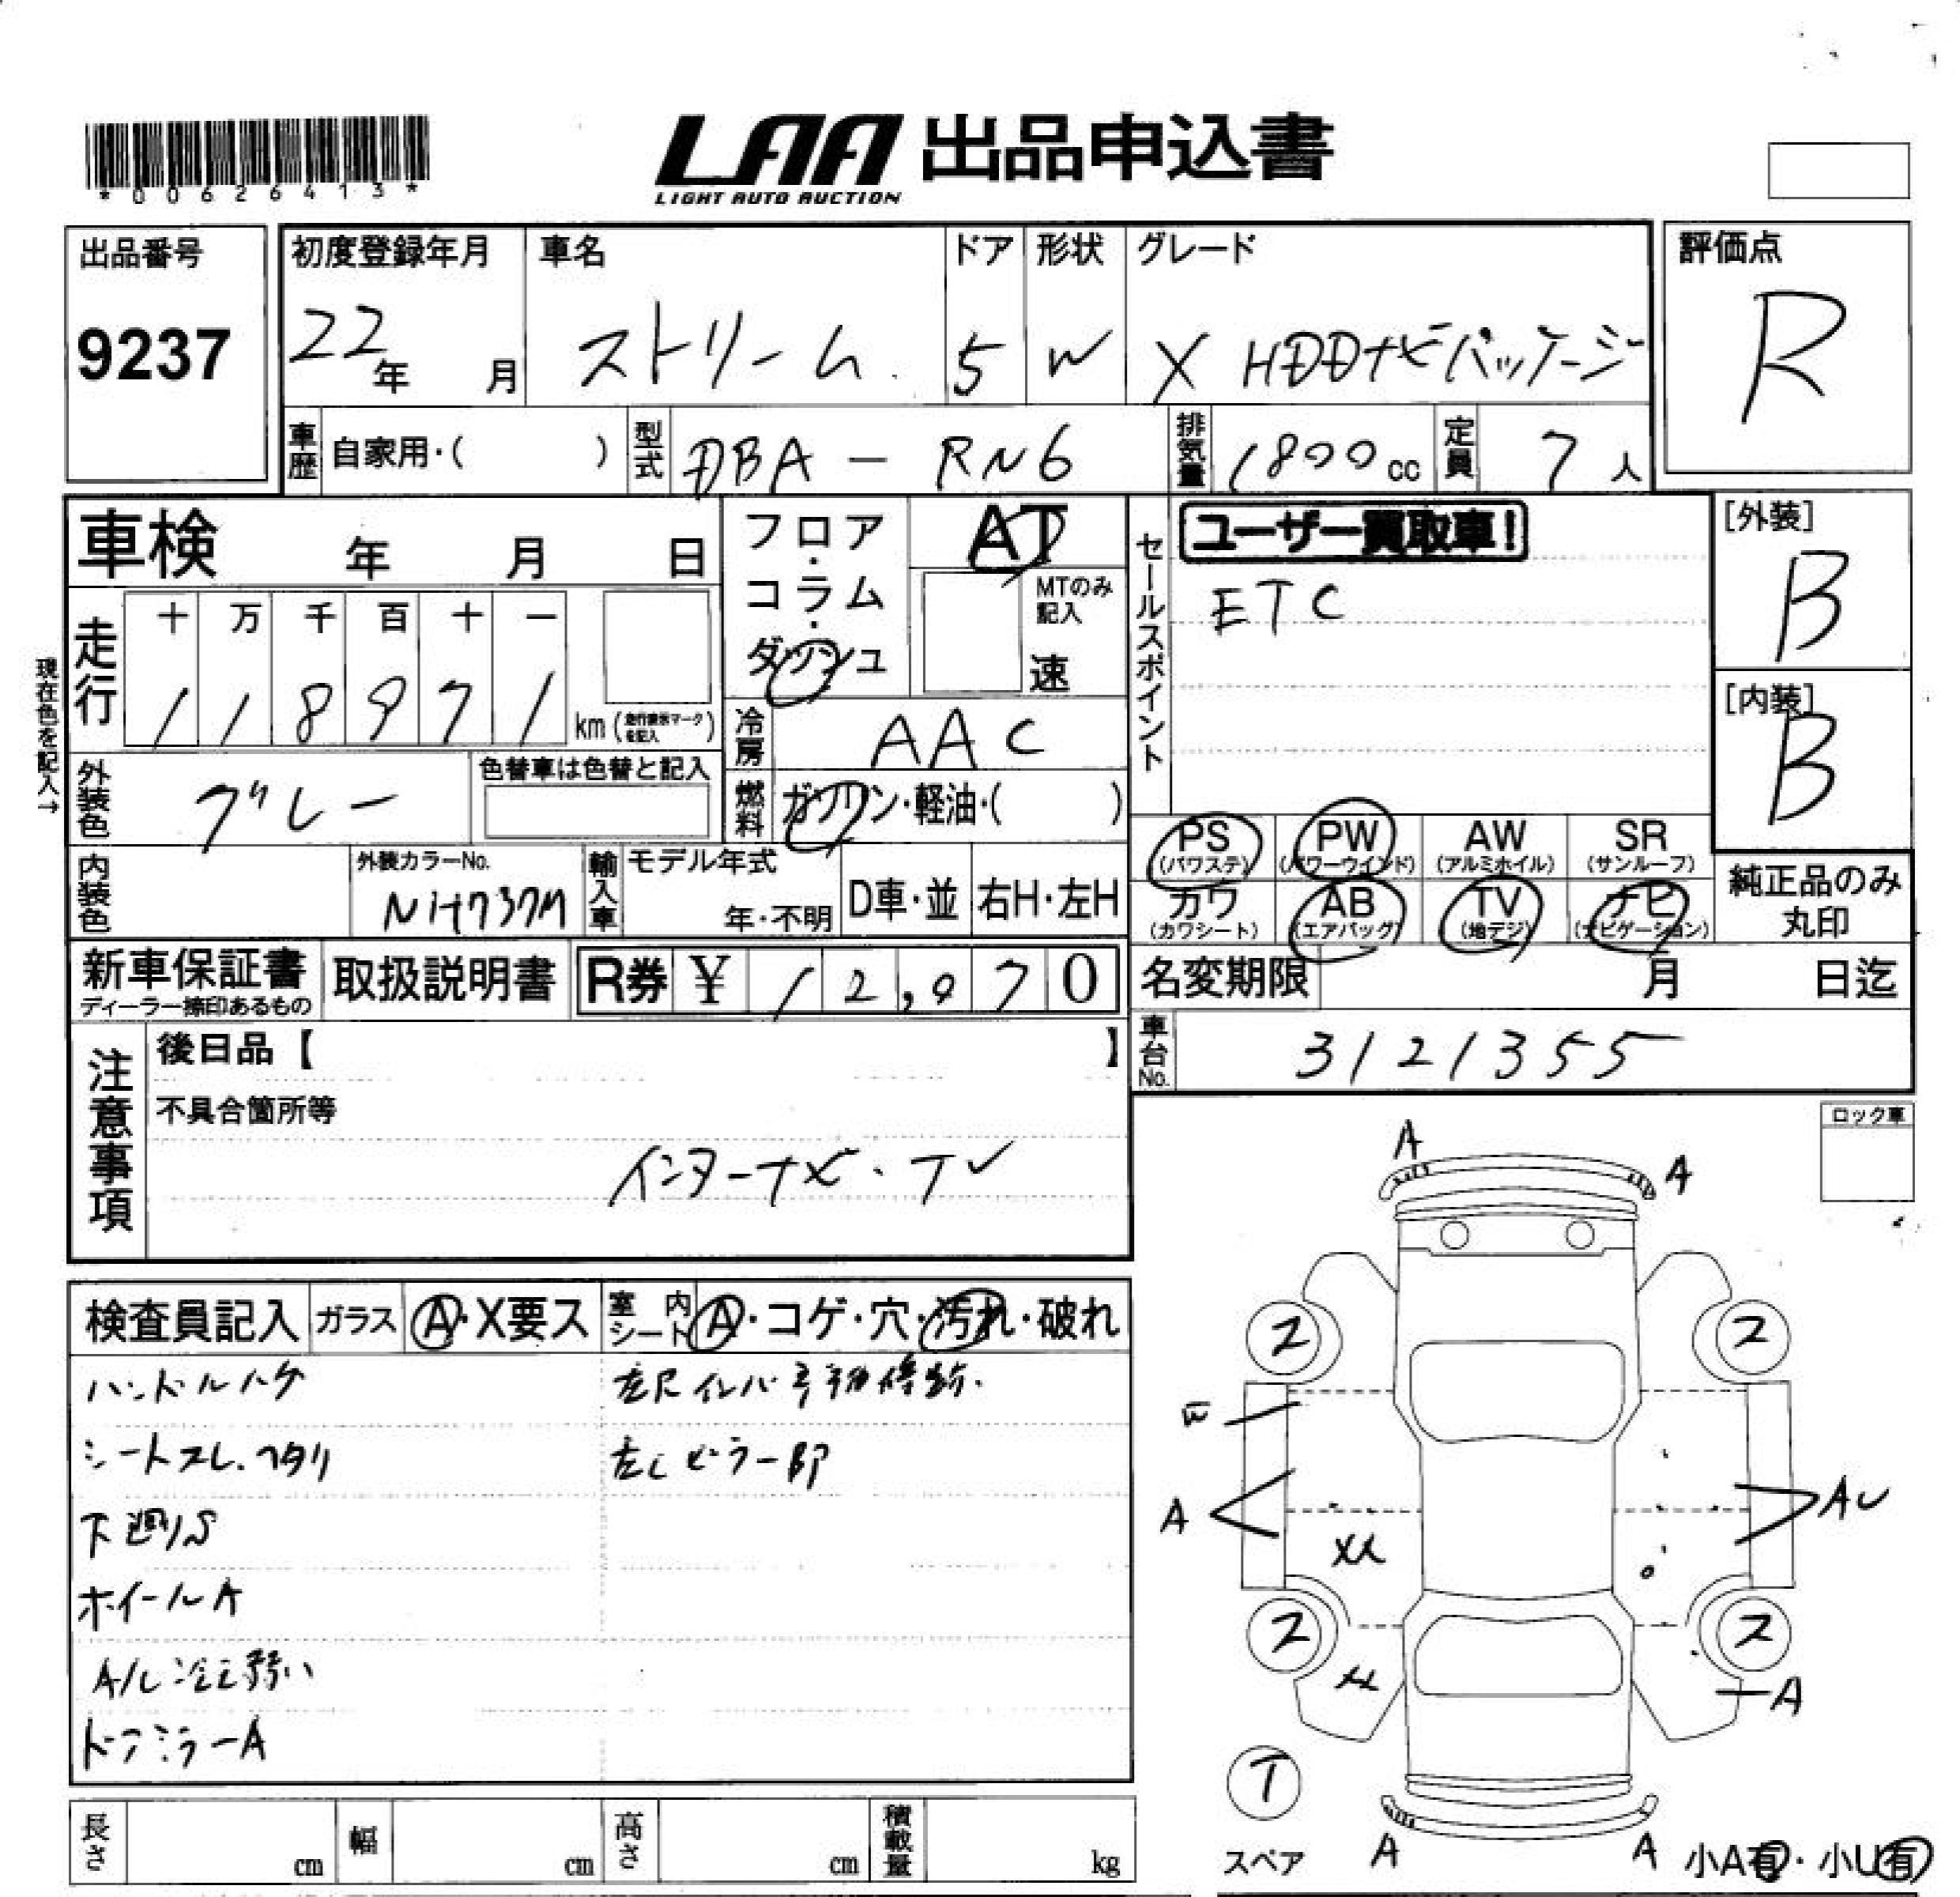 *00626413*
LAA 出品申込書
LIGHT AUTO AUCTION
出品番号
9237
初度登録年月
22年 月
車名
ストリーム
ドア
5
形状
W
グレード
X HDDナビパッケージ
評価点
R
車歴 自家用・( )
型式 DBA - RN6
排気量 1800cc
定員 7人
車検 年 月 日
フロア・コラム・ダッシュ
AT
MTのみ記入
速
セールスポイント
ユーザー買取車!
ETC
[外装]
B
[内装]
B
現在色を記入→
走行
十 万 千 百 十 一
1 1 8 9 7 1 km (走行表示マークを記入)
冷房 AAC
外装色 グレー
色替車は色替と記入
燃料 ガソリン・軽油・( )
PS (パワステ)
PW (パワーウインド)
AW (アルミホイル)
SR (サンルーフ)
カワ (カワシート)
AB (エアバッグ)
TV (地デジ)
ナビ (ナビゲーション)
純正品のみ丸印
内装色
外装カラーNo.
NH737M
輸入車
モデル年式
年・不明
D車・並
右H・左H
新車保証書
ディーラー捺印あるもの
取扱説明書
R券 ¥ 12,070
名変期限 月 日迄
車台No. 3121355
注意事項
後日品【 】
不具合箇所等
インターナビ・TV
ロック車
検査員記入
ガラス A・X要ス
室内シート A・コゲ・穴・汚れ・破れ
ハンドルハゲ
シートスレ.ヘタリ
下廻りS
ホイールA
A/C冷え弱い
ドアミラーA
左Cピラー部
A
A
2
2
A
AU
XX
2
2
A
T
スペア
A
A
小A有・小U有
長さ cm
幅 cm
高さ cm
積載量 kg